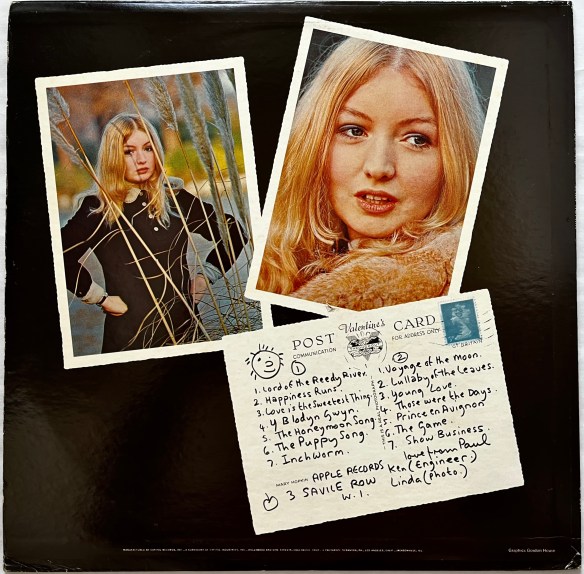 POST Valentine's CARD
COMMUNICATION
FOR ADDRESS ONLY
GT BRITAIN
1
1. Lord of the Reedy River.
2. Happiness Runs.
3. Love is the Sweetest Thing
4. Y Blodyn Gwyn.
5. The Honeymoon Song.
6. The Puppy Song.
7. Inchworm.
2
1. Voyage of the Moon.
2. Lullaby of the Leaves.
3. Young Love.
4. Those were the Days.
5. Prince en Avignon
6. The Game.
7. Show Business.
love from Paul
Ken (Engineer)
Linda (Photo.)
MARY HOPKIN APPLE RECORDS
3 SAVILE ROW
W.1.
Graphics Gordon House